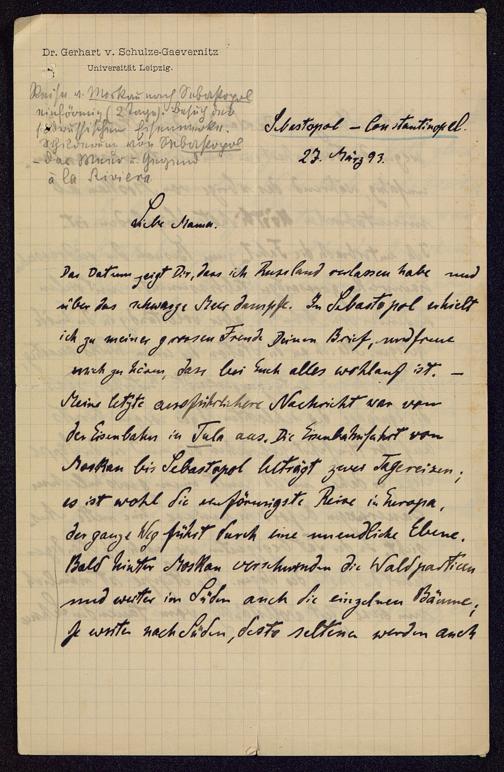 Dr. Gerhart v. Schulze-Gaevernitz
Universität Leipzig.
Reise v. Moskau nach Sebastopol
einförmig (2 Tage). Besuch der
Eisenwerke.
Schilderung von Sebastopol
- das Meer u. Gegend
à la Riviera
Sebastopol – Constantinopel.
27. März 93.
Liebe Mama.
Das Datum zeigt Dir, dass ich Russland verlassen habe und
über das schwarze Meer dampfe. In Sebastopol erhielt
ich zu meiner grossen Freude Deinen Brief, und freue
mich zu hören, dass bei Euch alles wohlauf ist. –
Meine letzte ausführlichere Nachricht war von
der Eisenbahn in Tula aus. Die Eisenbahnfahrt von
Moskau bis Sebastopol beträgt zwei Tagereisen;
es ist wohl die einförmigste Reise in Europa,
der ganze Weg führt durch eine unendliche Ebene.
Bald hinter Moskau verschwinden die Waldpartien
und weiter im Süden auch die einzelnen Bäume;
je weiter nach Süden, desto seltener werden auch